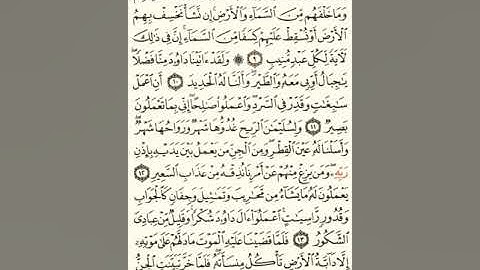 وَمَا خَلْفَهُم مِّنَ السَّمَاءِ وَالْأَرْضِ إِن نَّشَأْ نَخْسِفْ بِهِمُ
الْأَرْضَ أَوْ نُسْقِطْ عَلَيْهِمْ كِسَفًا مِّنَ السَّمَاءِ إِنَّ فِي ذَٰلِكَ
لَآيَةً لِّكُلِّ عَبْدٍ مُّنِيبٍ ٩ ۞ وَلَقَدْ آتَيْنَا دَاوُودَ مِنَّا فَضْلًا
يَا جِبَالُ أَوِّبِي مَعَهُ وَالطَّيْرَ وَأَلَنَّا لَهُ الْحَدِيدَ ١٠ أَنِ اعْمَلْ
سَابِغَاتٍ وَقَدِّرْ فِي السَّرْدِ وَاعْمَلُوا صَالِحًا إِنِّي بِمَا تَعْمَلُونَ
بَصِيرٌ ١١ وَلِسُلَيْمَانَ الرِّيحَ غُدُوُّهَا شَهْرٌ وَرَوَاحُهَا شَهْرٌ
وَأَسَلْنَا لَهُ عَيْنَ الْقِطْرِ وَمِنَ الْجِنِّ مَن يَعْمَلُ بَيْنَ يَدَيْهِ بِإِذْنِ
رَبِّهِ وَمَن يَزِغْ مِنْهُمْ عَنْ أَمْرِنَا نُذِقْهُ مِنْ عَذَابِ السَّعِيرِ ١٢
يَعْمَلُونَ لَهُ مَا يَشَاءُ مِن مَّحَارِيبَ وَتَمَاثِيلَ وَجِفَانٍ كَالْجَوَابِ
وَقُدُورٍ رَّاسِيَاتٍ اعْمَلُوا آلَ دَاوُودَ شُكْرًا وَقَلِيلٌ مِّنْ عِبَادِيَ
الشَّكُورُ ١٣ فَلَمَّا قَضَيْنَا عَلَيْهِ الْمَوْتَ مَا دَلَّهُمْ عَلَىٰ مَوْتِهِ
إِلَّا دَابَّةُ الْأَرْضِ تَأْكُلُ مِنسَأَتَهُ فَلَمَّا خَرَّ تَبَيَّنَتِ الْجِنُّ